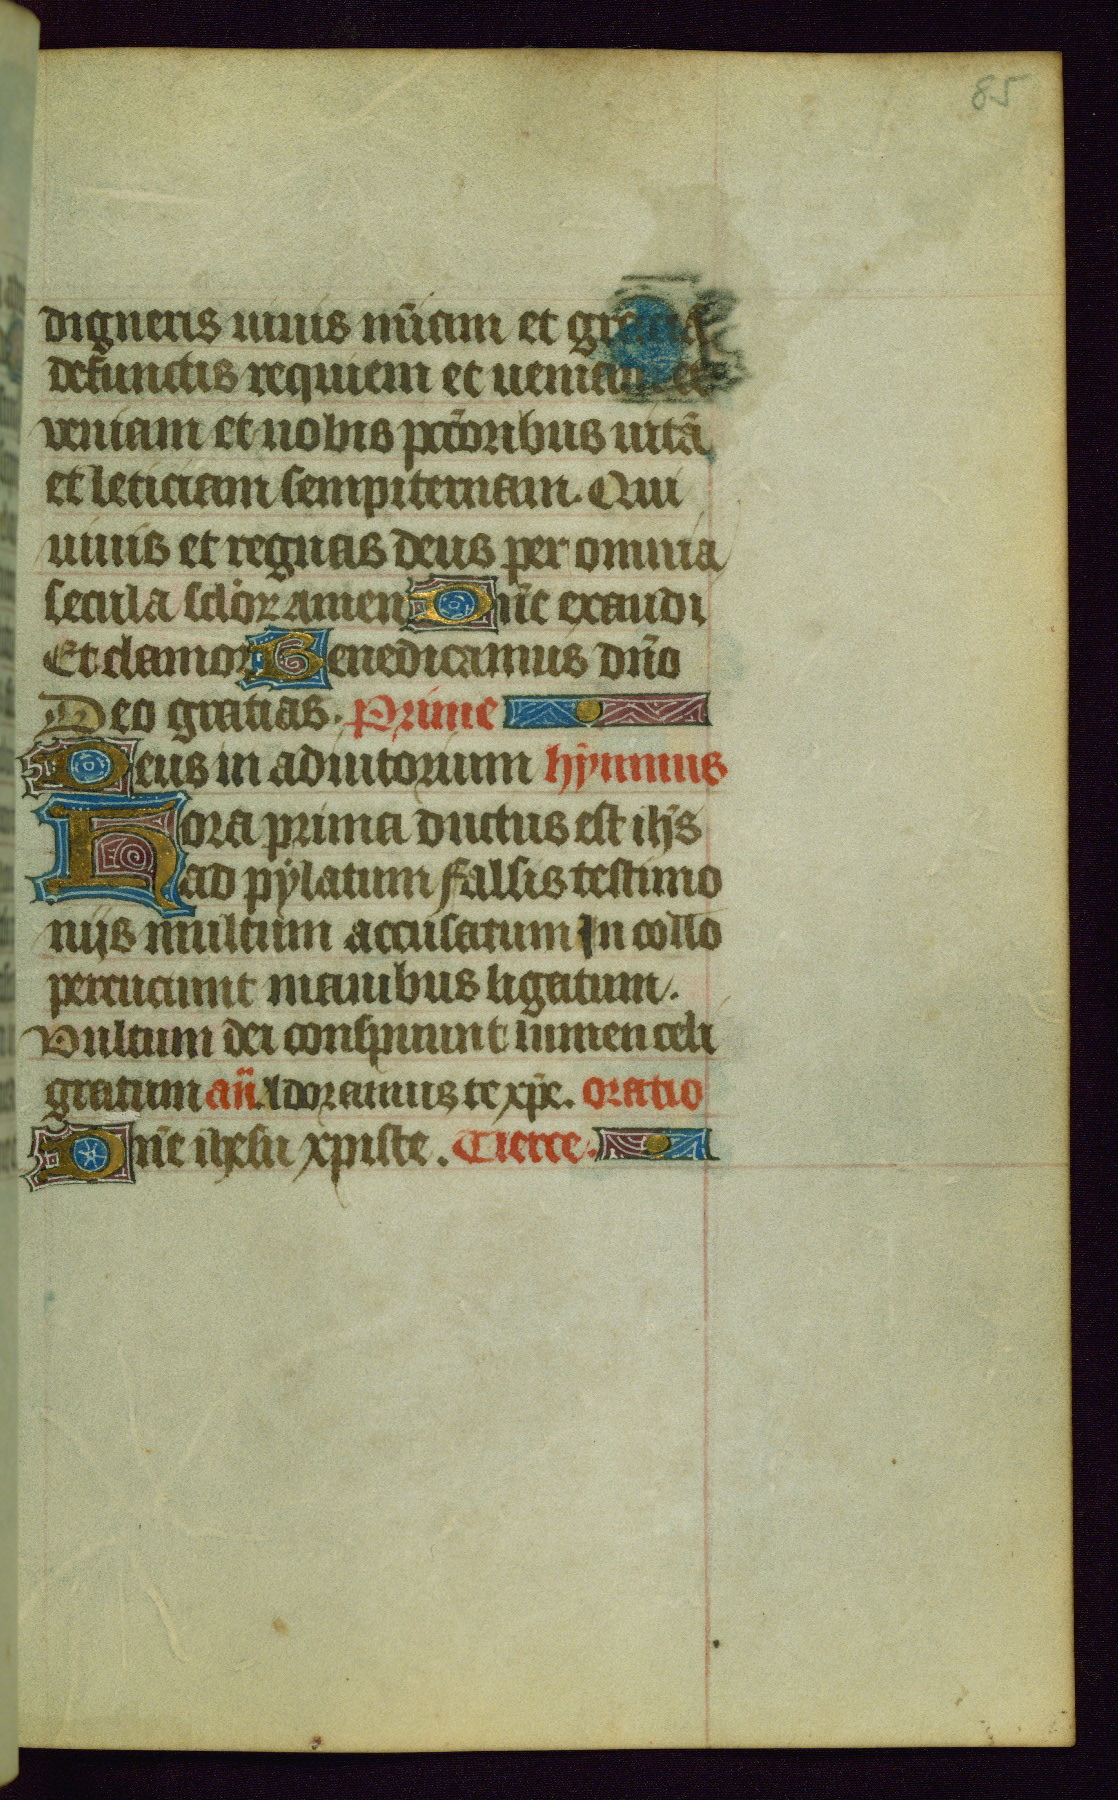 85
digneris uiuis mīam et
defunctis requiem et ueniam et
veniam et nobis pctōribus uitā
et leticiam sempiternam. Qui
uiuis et regnas deus per omnia
secula sclōr amen Dn̄e exaudi
Et clamor Benedicamus dn̄o
Deo gratias. Prime
Deus in adiutorium hȳmnus
Hora prima ductus est ih̄s
ad pẏlatum falsis testimo
nijs multum accusatum In collo
percuciunt manibus ligatum.
Vultum dei conspuunt lumen celi
gratum an̄ Adoramus te xp̄e. oratio
Dn̄e ihesu xpiste. Tierce.